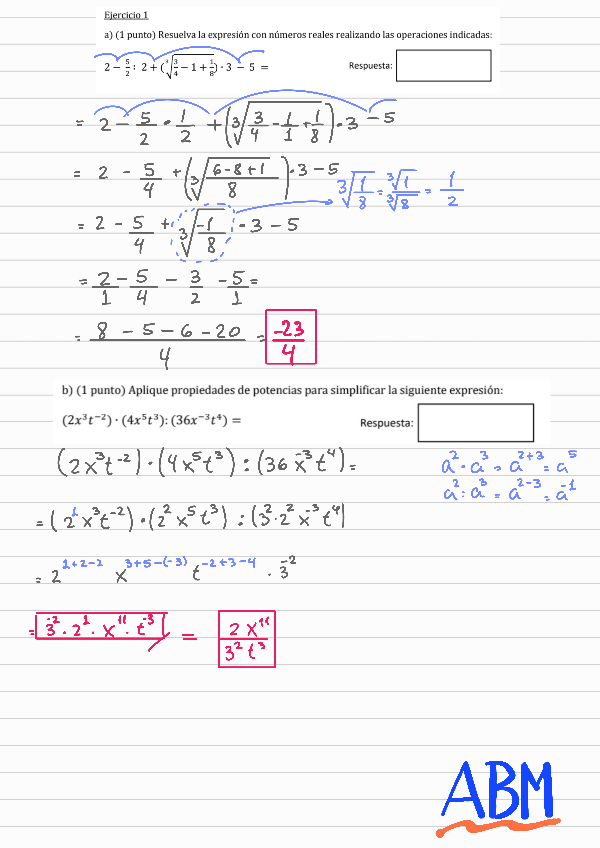 Ejercicio 1
a) (1 punto) Resuelva la expresión con números reales realizando las operaciones indicadas:
2 − 5/2 : 2 + (∛(3/4 − 1 + 1/8)) · 3 − 5 =
Respuesta:
= 2 − 5/2 · 1/2 + (∛(3/4 − 1/1 + 1/8)) · 3 − 5
= 2 − 5/4 + (∛((6−8+1)/8)) · 3 − 5
∛(1/8) = ∛1/∛8 = 1/2
= 2 − 5/4 + ∛(−1/8) · 3 − 5
= 2/1 − 5/4 − 3/2 − 5/1 =
= (8 − 5 − 6 − 20)/4 = −23/4
b) (1 punto) Aplique propiedades de potencias para simplificar la siguiente expresión:
(2x³t⁻²) · (4x⁵t³) : (36x⁻³t⁴) =
Respuesta:
(2x³t⁻²) · (4x⁵t³) : (36x⁻³t⁴) =
a² · a³ = a²⁺³ = a⁵
a² : a³ = a²⁻³ = a⁻¹
= (2¹x³t⁻²) · (2²x⁵t³) : (3² · 2²x⁻³t⁴)
= 2¹⁺²⁻² x³⁺⁵⁻⁽⁻³⁾ t⁻²⁺³⁻⁴ · 3⁻²
= 3⁻² · 2¹ · x¹¹ · t⁻³ = 2x¹¹/3²t³
ABM